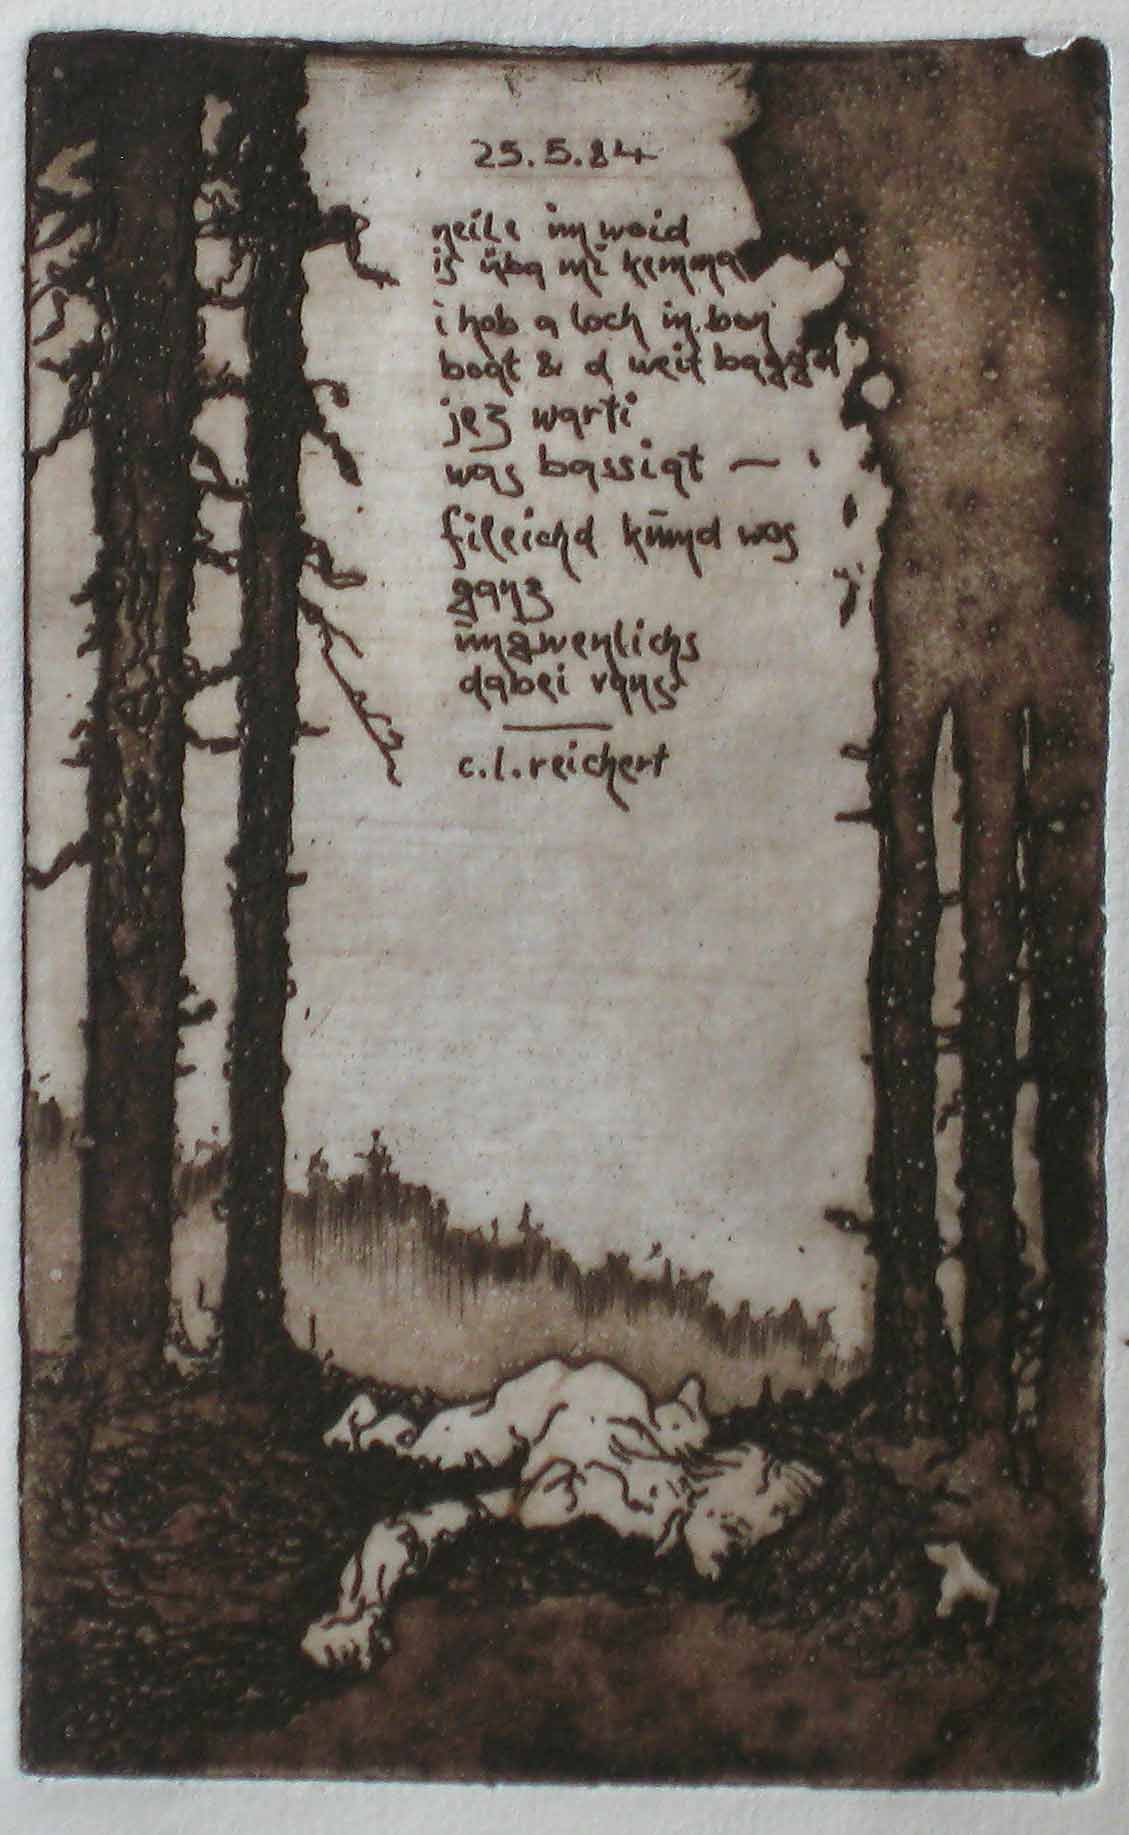 25.5.84
neile im woid
is üba mi kemma
i hob a loch in bon
boat & d weit baggd
jez warti
was bassiat —
fileichd kimd wos
ganz
ungwenlichs
dabei raus
c.l.reichert